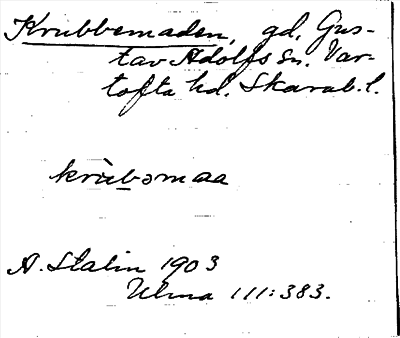 Krubbemaden, gd. Gus-
tav Adolfs sn. Var-
tofta hd. Skarab. l.
krùbəmaa
A. Stalin 1903
Ulma 111:383.